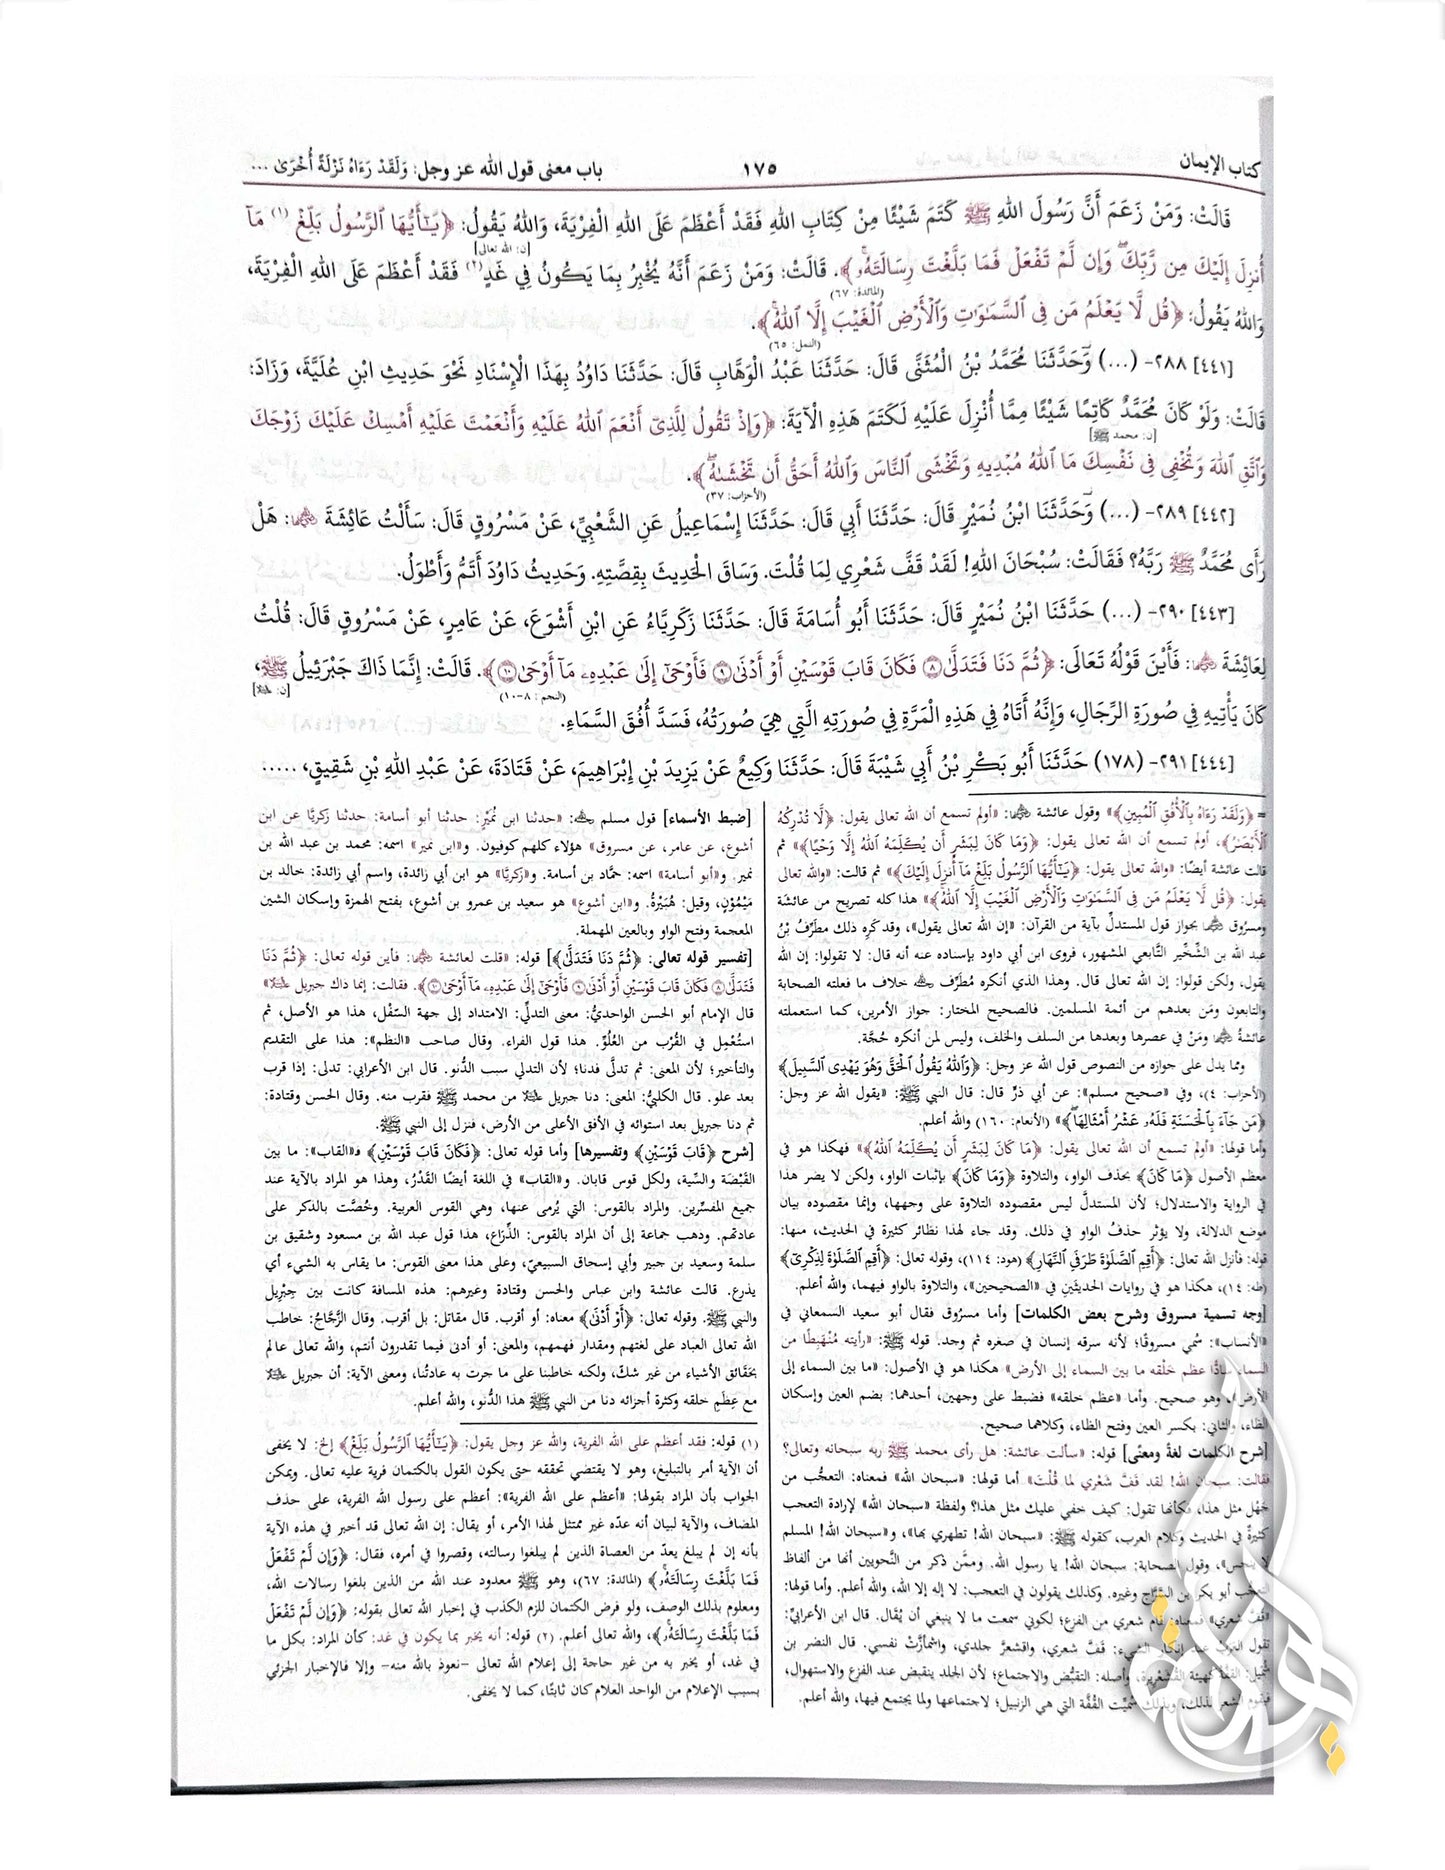 كتاب الإيمان
١٧٥
باب معنى قول الله عز وجل: وَلَقَدْ رَءَاهُ نَزْلَةً أُخْرَىٰ ...
قَالَتْ: وَمَنْ زَعَمَ أَنَّ رَسُولَ اللهِ ﷺ كَتَمَ شَيْئًا مِنْ كِتَابِ اللهِ فَقَدْ أَعْظَمَ عَلَى اللهِ الْفِرْيَةَ، وَاللهُ يَقُولُ: ﴿يَٰٓأَيُّهَا ٱلرَّسُولُ بَلِّغْ (١) مَآ
[ن: الله تعالى]
أُنزِلَ إِلَيْكَ مِن رَّبِّكَ ۖ وَإِن لَّمْ تَفْعَلْ فَمَا بَلَّغْتَ رِسَالَتَهُۥ﴾. قَالَتْ: وَمَنْ زَعَمَ أَنَّهُ يُخْبِرُ بِمَا يَكُونُ فِي غَدٍ (٢) فَقَدْ أَعْظَمَ عَلَى اللهِ الْفِرْيَةَ،
(المائدة: ٦٧)
وَاللهُ يَقُولُ: ﴿قُل لَّا يَعْلَمُ مَن فِى ٱلسَّمَٰوَٰتِ وَٱلْأَرْضِ ٱلْغَيْبَ إِلَّا ٱللهُ﴾.
(النمل: ٦٥)
[٤٤١] ٢٨٨- (...) وَحَدَّثَنَا مُحَمَّدُ بْنُ الْمُثَنَّى قَالَ: حَدَّثَنَا عَبْدُ الْوَهَّابِ قَالَ: حَدَّثَنَا دَاوُدُ بِهَذَا الْإِسْنَادِ نَحْوَ حَدِيثِ ابْنِ عُلَيَّةَ، وَزَادَ:
قَالَتْ: وَلَوْ كَانَ مُحَمَّدٌ كَاتِمًا شَيْئًا مِمَّا أُنْزِلَ عَلَيْهِ لَكَتَمَ هَذِهِ الْآيَةَ: ﴿وَإِذْ تَقُولُ لِلَّذِىٓ أَنْعَمَ ٱللهُ عَلَيْهِ وَأَنْعَمْتَ عَلَيْهِ أَمْسِكْ عَلَيْكَ زَوْجَكَ
[ن: محمد ﷺ]
وَٱتَّقِ ٱللهَ وَتُخْفِى فِى نَفْسِكَ مَا ٱللهُ مُبْدِيهِ وَتَخْشَى ٱلنَّاسَ وَٱللهُ أَحَقُّ أَن تَخْشَىٰهُ ۖ﴾.
(الأحزاب: ٣٧)
[٤٤٢] ٢٨٩- (...) وَحَدَّثَنَا ابْنُ نُمَيْرٍ قَالَ: حَدَّثَنَا أَبِي قَالَ: حَدَّثَنَا إِسْمَاعِيلُ عَنِ الشَّعْبِيِّ، عَنْ مَسْرُوقٍ قَالَ: سَأَلْتُ عَائِشَةَ: هَلْ
رَأَى مُحَمَّدٌ ﷺ رَبَّهُ؟ فَقَالَتْ: سُبْحَانَ اللهِ! لَقَدْ قَفَّ شَعْرِي لِمَا قُلْتَ. وَسَاقَ الْحَدِيثَ بِقِصَّتِهِ. وَحَدِيثُ دَاوُدَ أَتَمُّ وَأَطْوَلُ.
[٤٤٣] ٢٩٠- (...) حَدَّثَنَا ابْنُ نُمَيْرٍ قَالَ: حَدَّثَنَا أَبُو أُسَامَةَ قَالَ: حَدَّثَنَا زَكَرِيَّاءُ عَنِ ابْنِ أَشْوَعَ، عَنْ عَامِرٍ، عَنْ مَسْرُوقٍ قَالَ: قُلْتُ
لِعَائِشَةَ: فَأَيْنَ قَوْلُهُ تَعَالَى: ﴿ثُمَّ دَنَا فَتَدَلَّىٰ ٨ فَكَانَ قَابَ قَوْسَيْنِ أَوْ أَدْنَىٰ ٩ فَأَوْحَىٰٓ إِلَىٰ عَبْدِهِۦ مَآ أَوْحَىٰ ١٠﴾. قَالَتْ: إِنَّمَا ذَاكَ جَبْرَئِيلُ ﷺ،
(النجم: ٨-١٠)
كَانَ يَأْتِيهِ فِي صُورَةِ الرِّجَالِ، وَإِنَّهُ أَتَاهُ فِي هَذِهِ الْمَرَّةِ فِي صُورَتِهِ الَّتِي هِيَ صُورَتُهُ، فَسَدَّ أُفُقَ السَّمَاءِ.
[٤٤٤] ٢٩١- (١٧٨) حَدَّثَنَا أَبُو بَكْرِ بْنُ أَبِي شَيْبَةَ قَالَ: حَدَّثَنَا وَكِيعٌ عَنْ يَزِيدَ بْنِ إِبْرَاهِيمَ، عَنْ قَتَادَةَ، عَنْ عَبْدِ اللهِ بْنِ شَقِيقٍ، .....
= ﴿وَلَقَدْ رَءَاهُ بِٱلْأُفُقِ ٱلْمُبِينِ﴾» وقول عائشة: «أولم تسمع أن الله تعالى يقول: ﴿لَّا تُدْرِكُهُ
ٱلْأَبْصَٰرُ﴾، أولم تسمع أن الله تعالى يقول: ﴿وَمَا كَانَ لِبَشَرٍ أَن يُكَلِّمَهُ ٱللهُ إِلَّا وَحْيًا﴾» ثم
قالت عائشة أيضًا: «والله تعالى يقول: ﴿يَٰٓأَيُّهَا ٱلرَّسُولُ بَلِّغْ مَآ أُنزِلَ إِلَيْكَ﴾» ثم قالت: «والله تعالى
يقول: ﴿قُل لَّا يَعْلَمُ مَن فِى ٱلسَّمَٰوَٰتِ وَٱلْأَرْضِ ٱلْغَيْبَ إِلَّا ٱللهُ﴾» هذا كله تصريح من عائشة
ومسرُوق بجواز قول المستدلّ بآية من القرآن: «إن الله تعالى يقول»، وقد كَرِه ذلك مطَرِّفُ بْنُ
عبد الله بن الشِّخِّير التَّابعي المشهور، فروى ابن أبي داود بإسناده عنه أنه قال: لا تقولوا: إن الله
يقول، ولكن قولوا: إن الله تعالى قال. وهذا الذي أنكره مُطرِّف خلاف ما فعلته الصحابة
والتابعون ومَن بعدهم من أئمة المسلمين. فالصحيح المختار: جواز الأمرين، كما استعملته
عائشةُ ومَنْ في عصرها وبعدها من السلف والخلف، وليس لمن أنكره حُجَّة.
ومما يدل على جوازه من النصوص قول الله عز وجل: ﴿وَٱللهُ يَقُولُ ٱلْحَقَّ وَهُوَ يَهْدِى ٱلسَّبِيلَ﴾
(الأحزاب: ٤)، وفي «صحيح مسلم»: عن أبي ذرٍّ قال: قال النبي ﷺ: «يقول الله عز وجل:
﴿مَن جَآءَ بِٱلْحَسَنَةِ فَلَهُۥ عَشْرُ أَمْثَالِهَا ۖ﴾» (الأنعام: ١٦٠) والله أعلم.
وأما قولها: «أولم تسمع أن الله تعالى يقول: ﴿مَا كَانَ لِبَشَرٍ أَن يُكَلِّمَهُ ٱللهُ﴾» فهكذا هو في
معظم الأصول ﴿مَا كَانَ﴾ بحذف الواو، والتلاوة ﴿وَمَا كَانَ﴾ بإثبات الواو، ولكن لا يضر هذا
في الرواية والاستدلال؛ لأن المستدلّ ليس مقصوده التلاوة على وجهها، وإنما مقصوده بيان
موضع الدلالة، ولا يؤثر حذفُ الواو في ذلك. وقد جاء لهذا نظائر كثيرة في الحديث، منها:
قوله: فأنزل الله تعالى: ﴿أَقِمِ ٱلصَّلَوٰةَ طَرَفَيِ ٱلنَّهَارِ﴾ (هود: ١١٤)، وقوله تعالى: ﴿أَقِمِ ٱلصَّلَوٰةَ لِذِكْرِىٓ﴾
(طه: ١٤)، هكذا هو في روايات الحديثَين في «الصحيحين»، والتلاوة بالواو فيهما، والله أعلم.
[وجه تسمية مسروق وشرح بعض الكلمات] وأما مسرُوق فقال أبو سعيد السمعاني في
«الأنساب»: سُمي مسروقًا؛ لأنه سرقه إنسان في صغره ثم وجد. قوله ﷺ: «رأيته مُنْهَبِطًا من
السماء سادًّا عظم خلْقه ما بين السماء إلى الأرض» هكذا هو في الأصول: «ما بين السماء إلى
الأرض»، وهو صحيح. وأما «عظم خلقه» فضبط على وجهين، أحدهما: بضم العين وإسكان
الظاء، والثاني: بكسر العين وفتح الظاء، وكلاهما صحيح.
[شرح الكلمات لغةً ومعنًى] قوله: «سألت عائشة: هل رأى محمد ﷺ ربه سبحانه وتعالى؟
فقالت: سبحان الله! لقد قفَّ شعْري لما قُلْتَ» أما قولها: «سبحان الله» فمعناه: التعجُّب من
جَهْل مثل هذا، فكأنها تقول: كيف خفي عليك مثل هذا؟ ولفظة «سبحان الله» لإرادة التعجب
كثيرةٌ في الحديث وكلام العرب، كقوله ﷺ: «سبحان الله! تطهري بها»، و«سبحان الله! المسلم
لا ينجس»، وقول الصحابة: سبحان الله! يا رسول الله. وممَّن ذكر من النَّحويين أنها من ألفاظ
التعجّب أبو بكر بن السَّرَّاج وغيره. وكذلك يقولون في التعجب: لا إله إلا الله، والله أعلم. وأما قولها:
«قَفَّ شعري» فمعناه: قام شعري من الفزع؛ لكوني سمعت ما لا ينبغي أن يُقَال. قال ابن الأعرابيّ:
تقول العرب عند إنكار الشيء: قفَّ شعري، واقشعرَّ جلدي، واشمأزَّتْ نفسي. قال النضر بن
شُميل: القفّة كهيئة القُشَعْرِيرة، وأصله: التقبُّض والاجتماع؛ لأن الجلد ينقبض عند الفزع والاستهوال،
فيقوم الشعر لذلك، وبذلك سُميِّت القُفَّة التي هي الزنبيل؛ لاجتماعها ولما يجتمع فيها، والله أعلم.
[ضبط الأسماء] قول مسلم: «حدثنا ابن نُمَيْرٍ: حدثنا أبو أسامة: حدثنا زكريَّا عن ابن
أشوع، عن عامر، عن مسروق» هؤلاء كلهم كوفيون. و«ابن نمير» اسمه: محمد بن عبد الله بن
نمير. و«أبو أسامة» اسمه: حمَّاد بن أسامة. و«زكريَّا» هو ابن أبي زائدة، واسم أبي زائدة: خالد بن
مَيْمُوْنٍ، وقيل: هُبَيْرَةُ. و«ابن أشوع» هو سعيد بن عمرو بن أشوع، بفتح الهمزة وإسكان الشين
المعجمة وفتح الواو وبالعين المهملة.
[تفسير قوله تعالى: ﴿ثُمَّ دَنَا فَتَدَلَّىٰ﴾] قوله: «قلت لعائشة: فأين قوله تعالى: ﴿ثُمَّ دَنَا
فَتَدَلَّىٰ ٨ فَكَانَ قَابَ قَوْسَيْنِ أَوْ أَدْنَىٰ ٩ فَأَوْحَىٰٓ إِلَىٰ عَبْدِهِۦ مَآ أَوْحَىٰ ١٠﴾. فقالت: إنما ذاك جبريل»
قال الإمام أبو الحسن الواحديُّ: معنى التدلّي: الامتداد إلى جهة السّفْل، هذا هو الأصل، ثم
استُعْمِل في القُرْب من العُلُوّ. هذا قول الفراء. وقال صاحب «النظم»: هذا على التقديم
والتأخير؛ لأن المعنى: ثم تدلَّى فدنا؛ لأن التدلي سبب الدُّنو. قال ابن الأعرابي: تدلى: إذا قرب
بعد علو. قال الكلبيُّ: المعنى: دنا جبريل من محمد ﷺ فقرب منه. وقال الحسن وقتادة:
ثم دنا جبريل بعد استوائه في الأفق الأعلى من الأرض، فنزل إلى النبي ﷺ.
[شرح ﴿قَابَ قَوْسَيْنِ﴾ وتفسيرها] وأما قوله تعالى: ﴿فَكَانَ قَابَ قَوْسَيْنِ﴾ فـ«القاب»: ما بين
القَبْضَة والسِّية، ولكل قوس قابان. و«القاب» في اللغة أيضًا القَدْرُ، وهذا هو المراد بالآية عند
جميع المفسِّرين. والمراد بالقوس: التي يُرمى عنها، وهي القوس العربية. وخُصَّت بالذكر على
عادتهم. وذهب جماعة إلى أن المراد بالقوس: الذِّرَاع، هذا قول عبد الله بن مسعود وشقيق بن
سلمة وسعيد بن جبير وأبي إسحاق السبيعيّ، وعلى هذا معنى القوس: ما يقاس به الشيء أي
يذرع. قالت عائشة وابن عباس والحسن وقتادة وغيرهم: هذه المسافة كانت بين جِبْرِيل
والنبي ﷺ. وقوله تعالى: ﴿أَوْ أَدْنَىٰ﴾ معناه: أو أقرب. قال مقاتل: بل أقرب. وقال الزَّجَّاجُ: خاطب
الله تعالى العباد على لغتهم ومقدار فهمهم، والمعنى: أو أدنى فيما تقدرون أنتم، والله تعالى عالم
بحَقَائق الأشياء من غير شكّ، ولكنه خاطبنا على ما جرت به عادتُنا، ومعنى الآية: أن جبريل
مع عِظَمِ خلقه وكثرة أجزائه دنا من النبي ﷺ هذا الدُّنو، والله أعلم.
(١) قوله: فقد أعظم على الله الفرية، والله عز وجل يقول: ﴿يَٰٓأَيُّهَا ٱلرَّسُولُ بَلِّغْ﴾ إلخ: لا يخفى
أن الآية أمر بالتبليغ، وهو لا يقتضي تحققه حتى يكون القول بالكتمان فرية عليه تعالى. ويمكن
الجواب بأن المراد بقولها: «أعظم على الله الفرية»: أعظم على رسول الله الفرية، على حذف
المضاف، والآية لبيان أنه عدّه غير ممتثل لهذا الأمر، أو يقال: إن الله تعالى قد أخبر في هذه الآية
بأنه إن لم يبلغ يعدّ من العصاة الذين لم يبلغوا رسالته، وقصروا في أمره، فقال: ﴿وَإِن لَّمْ تَفْعَلْ
فَمَا بَلَّغْتَ رِسَالَتَهُۥ﴾ (المائدة: ٦٧)، وهو ﷺ معدود عند الله من الذين بلغوا رسالات الله،
ومعلوم بذلك الوصف، ولو فرض الكتمان للزم الكذب في إخبار الله تعالى بقوله: ﴿وَإِن لَّمْ تَفْعَلْ
فَمَا بَلَّغْتَ رِسَالَتَهُۥ﴾، والله تعالى أعلم. (٢) قوله: أنه يخبر بما يكون في غد: كأن المراد: بكل ما
في غد، أو يخبر به من غير حاجة إلى إعلام الله تعالى -نعوذ بالله منه- وإلا فالإخبار الجزئي
بسبب الإعلام من الواحد العلام كان ثابتًا، كما لا يخفى.